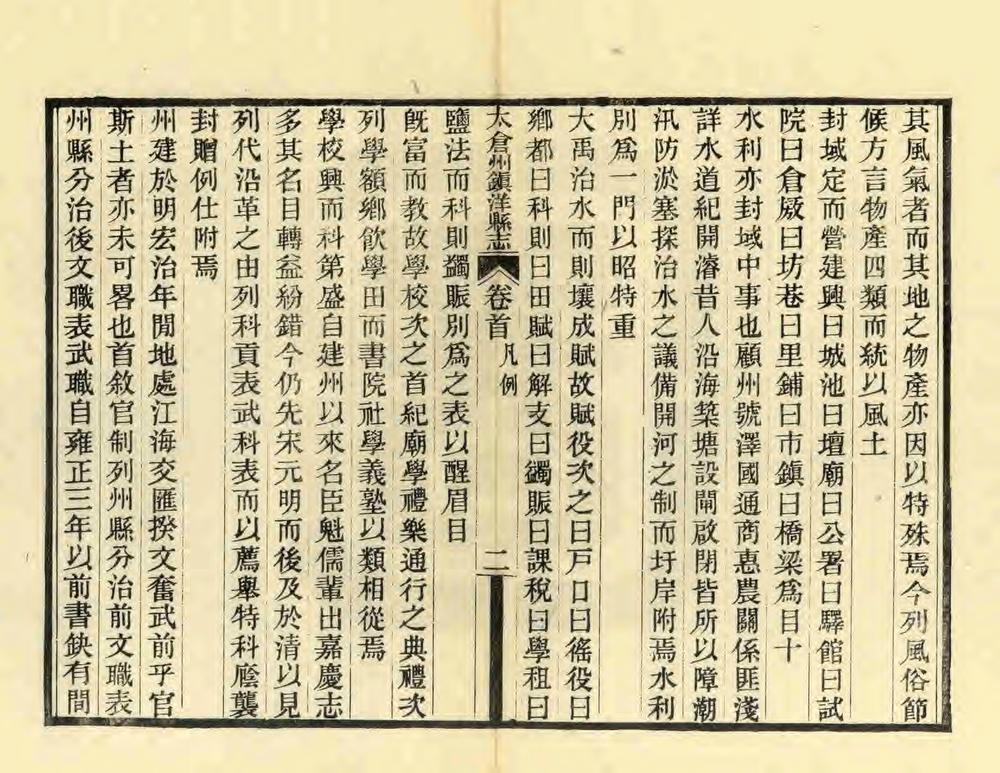 其風氣者而其地之物產亦因以特殊焉今列風俗節
候方言物產四類而統以風土
封域定而營建興曰城池曰壇廟曰公署曰驛館曰試
院曰倉廒曰坊巷曰里鋪曰市鎮曰橋梁爲目十
水利亦封域中事也顧州號澤國通商惠農關係匪淺
詳水道紀開濬昔人沿海築塘設閘啟閉皆所以障潮
汛防淤塞探治水之議備開河之制而圩岸附焉水利
別爲一門以昭特重
大禹治水而則壤成賦故賦役次之曰戸口曰徭役曰
鄉都曰科則曰田賦曰解支曰蠲賑曰課稅曰學租曰
太倉州鎮洋縣志 卷首 凡例 二
鹽法而科則蠲賑別爲之表以醒眉目
旣富而教故學校次之首紀廟學禮樂通行之典禮次
列學額鄉飮學田而書院社學義塾以類相從焉
學校興而科第盛自建州以來名臣魁儒輩出嘉慶志
多其名目轉益紛錯今仍先宋元明而後及於清以見
列代沿革之由列科貢表武科表而以薦舉特科廕襲
封贈例仕附焉
州建於明宏治年閒地處江海交匯揆文奮武前乎官
斯土者亦未可畧也首敘官制列州縣分治前文職表
州縣分治後文職表武職自雍正三年以前書缺有間